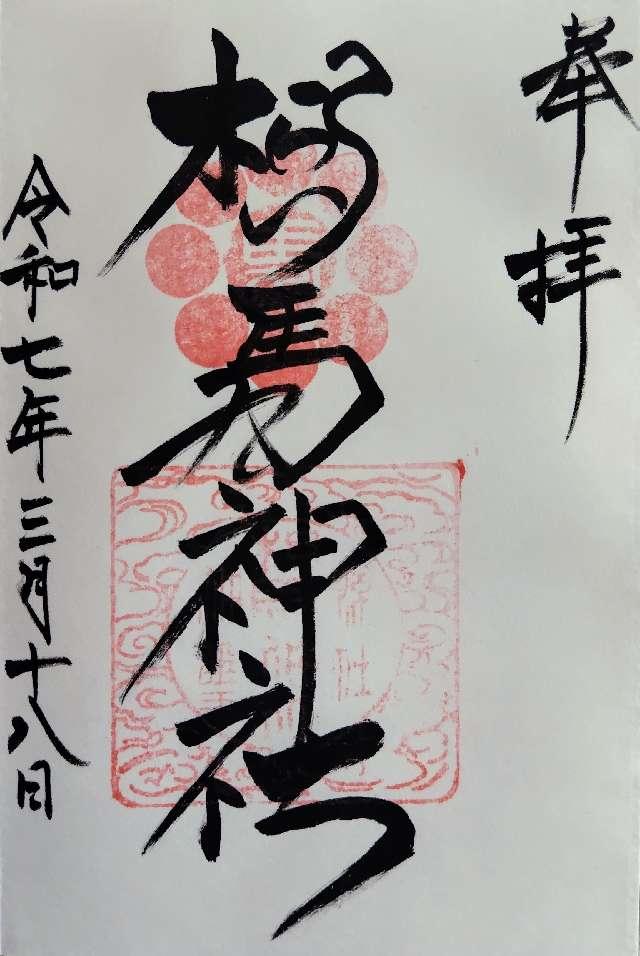 奉拝
相馬神社
令和七年三月十八日